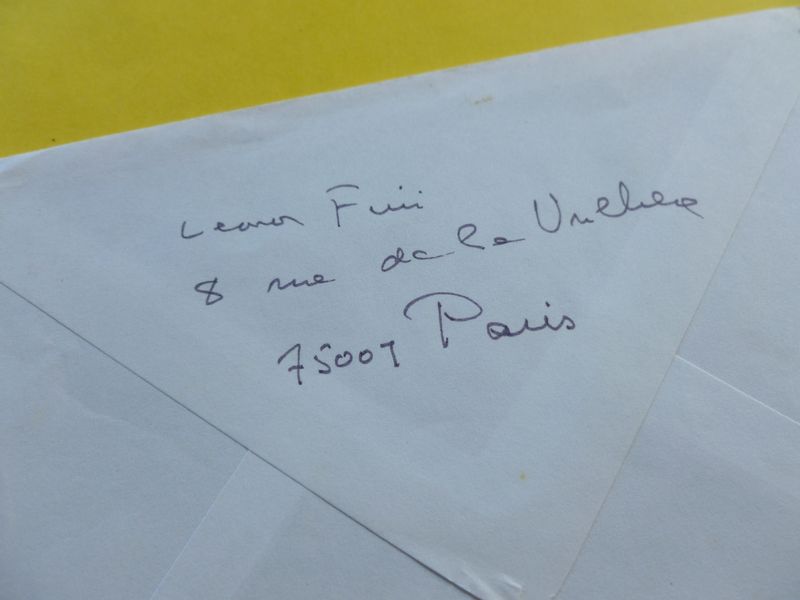 Leonor Fini
8 rue de la Vrillière
75001 Paris